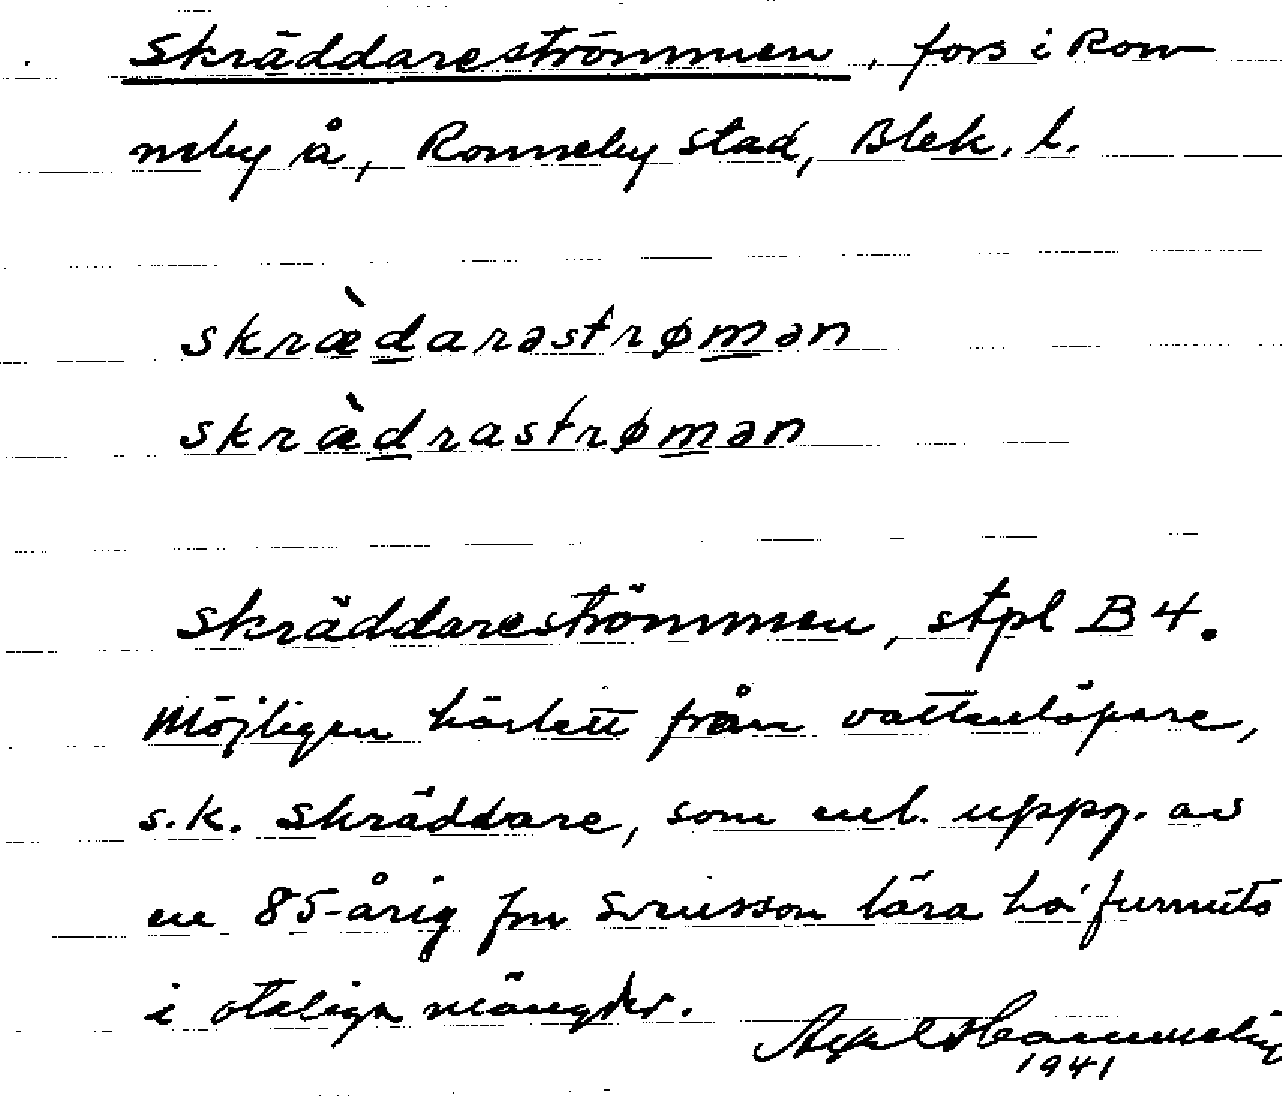 Skräddareströmmen, fors i Ron-
neby å, Ronneby stad, Blek. l.
skræ̀darəstrømən
skræ̀drastrømən
Skräddareströmmen, stpl B4.
Möjligen härlett från vattenlöpare,
s.k. skräddare, som enl. uppg. av
en 85-årig fru Svensson lära ha funnits
i otaliga mängder.
Axel
1941